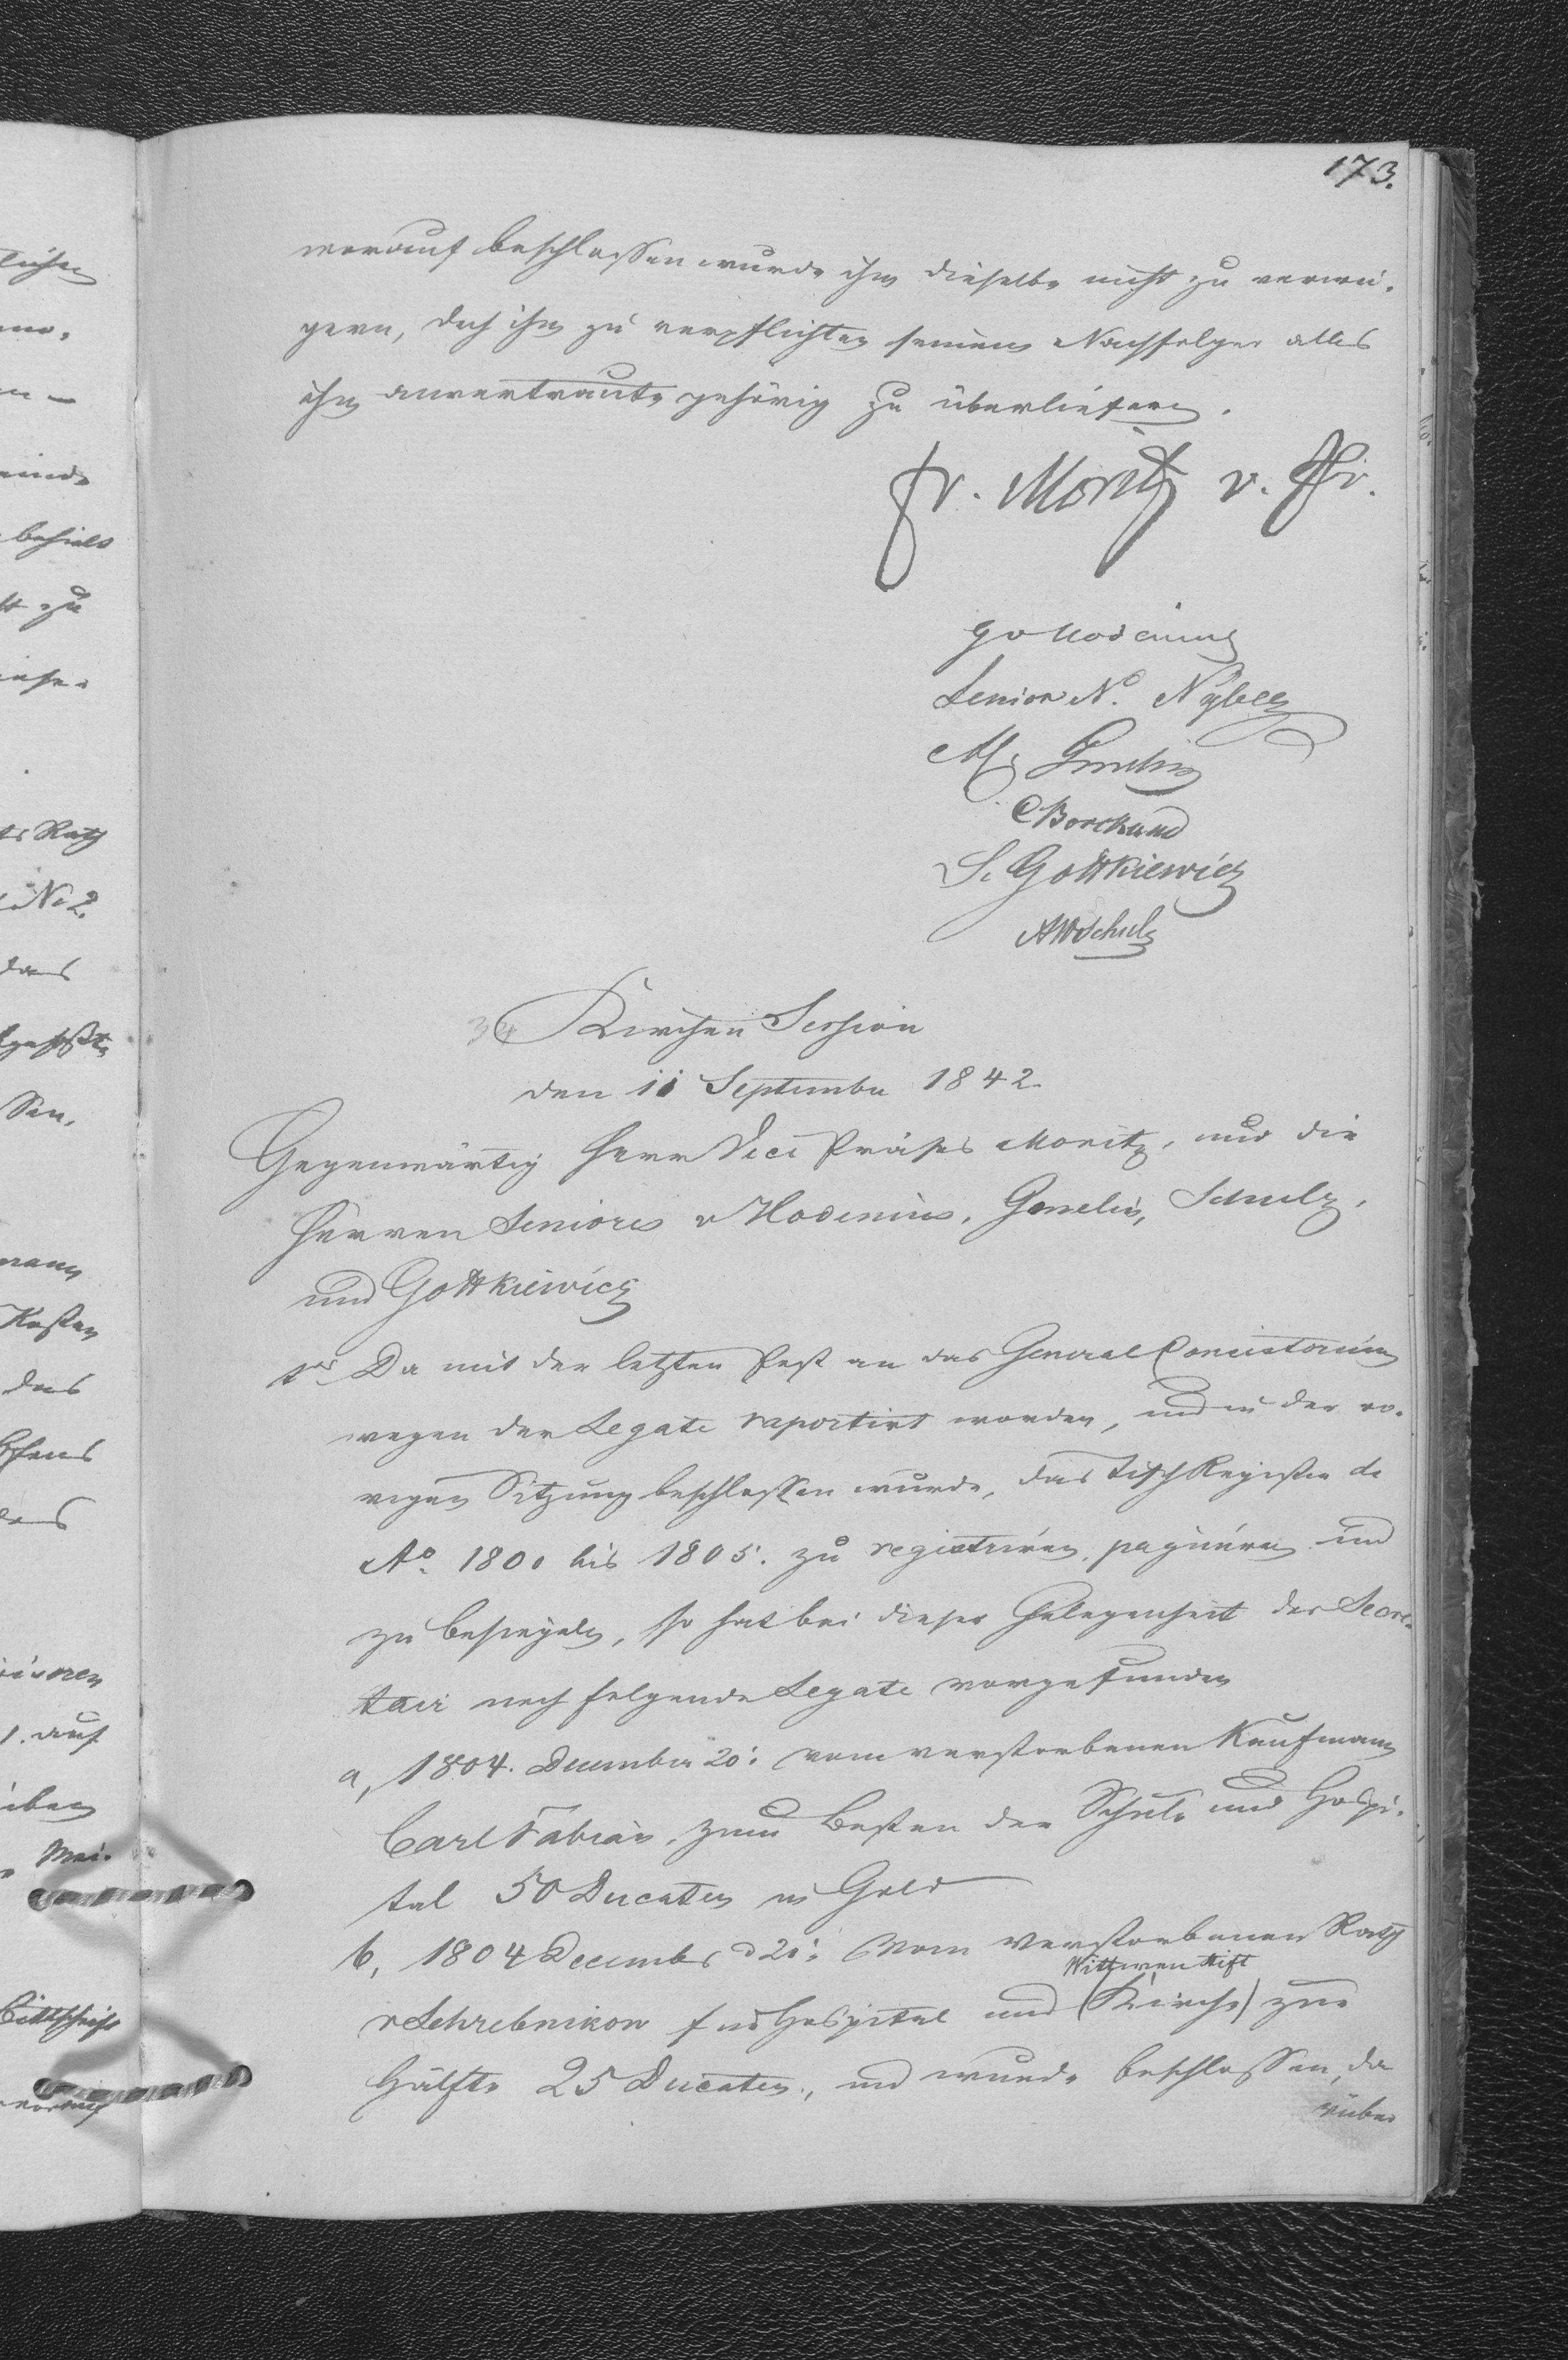 173.
worauf beschlossen wurde ihm dieselbe nicht zu verwei-
gern, doch ihn zu verpflichten seinem Nachfolger alles
ihm anvertraute gehörig zu überliefern.
Fr. Moritz v. Pr.
G v Modenius
Senior N. Nyberg
M. Gmelin
C Borchard
S. Gottkiewicz
AW Schulz
34 Kirchen Session
den 11 September 1842
Gegenwärtig Herr Vice Präses Moritz, und die
Herren Seniores v Modenius, Gmelin, Schulz,
und Gottkiewicz
1. Da mit der letzten Post an das General Consistorium
wegen der Legate raportirt worden, und in der vo-
rigen Sitzung beschlossen wurde, das Tisch Register de
Ao. 1800 bis 1805. zu registriren, paginiren und
zu besiegeln, so hat bei dieser Gelegenheit der Secre-
tair noch folgende Legate vorgefunden
a, 1804. December 20: vom verstorbenen Kaufmann
Carl Fabian, zum Besten der Schule und Hospi-
tal 50 Ducaten in Gold
b, 1804 December d 20: Vom verstorbenen Rath
Wittwenstift
v Schrebnikow fürs Hospital und (Kirche) zur
Hälfte 25 Ducaten., und wurde beschlossen, da
rüber